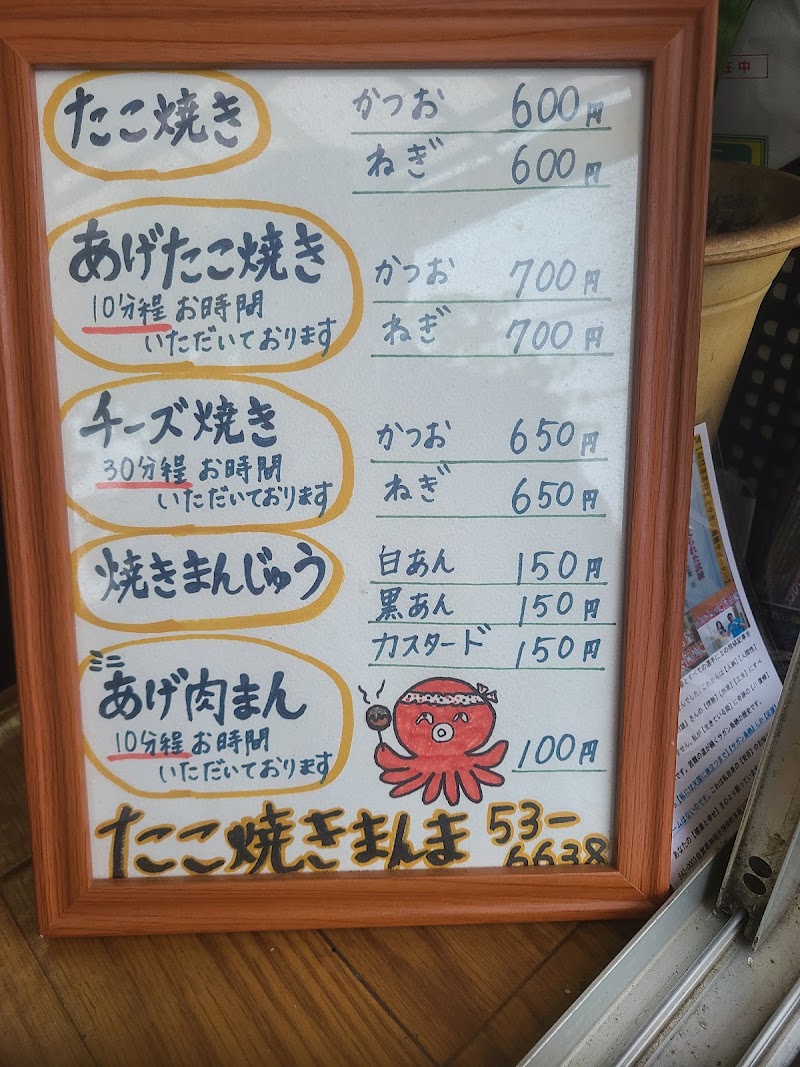 たこ焼き
かつお 600円
ねぎ 600円
あげたこ焼き
10分程お時間
いただいております
かつお 700円
ねぎ 700円
チーズ焼き
30分程お時間
いただいております
かつお 650円
ねぎ 650円
焼きまんじゅう
白あん 150円
黒あん 150円
カスタード 150円
ミニ
あげ肉まん
10分程お時間
いただいております
100円
たこ焼きまんま 53-
6638